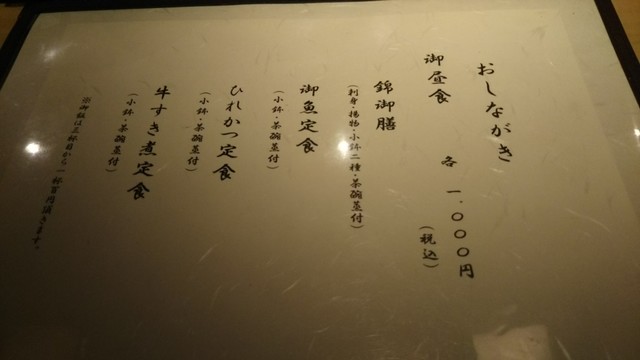 おしながき
御昼食 各 一、〇〇〇円
(税込)
錦御膳
(刺身・揚物・小鉢二種・茶碗蒸付)
御魚定食
(小鉢・茶碗蒸付)
ひれかつ定食
(小鉢・茶碗蒸付)
牛すき煮定食
(小鉢・茶碗蒸付)
※御飯は三杯目から一杯百円頂きます。